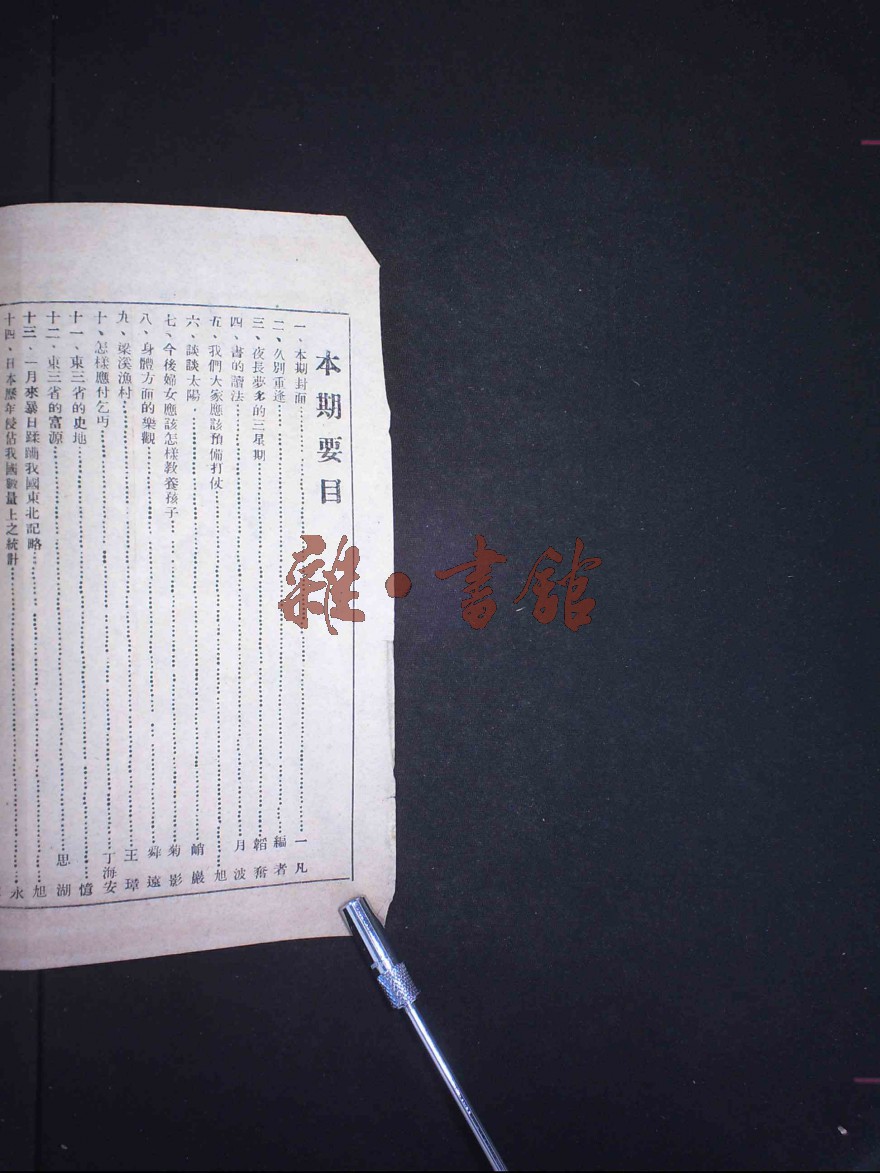 本期要目
一、本期封面……一凡
二、久別重逢……編者
三、夜長夢多的三星期……韜奮
四、書的讀法……月波
五、我們大家應該預備打仗……旭
六、談談太陽……峭巖
七、今後婦女應該怎樣教養孩子……菊影
八、身體方面的樂觀……舜遠
九、梁溪漁村……王璋
十、怎樣應付乞丐……丁海安
十一、東三省的史地……憶
十二、東三省的富源……思湖
十三、一月來暴日蹂躪我國東北記略……旭
十四、日本歷年侵佔我國數量上之統計……永
雜·書館